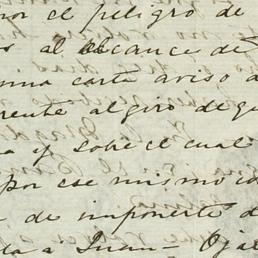 por el peligro de
al alcance de
una carta aviso a
rente al giro de que
a y sobre el cual
Por ese mismo co
a de importe d
da a Juan Ojal